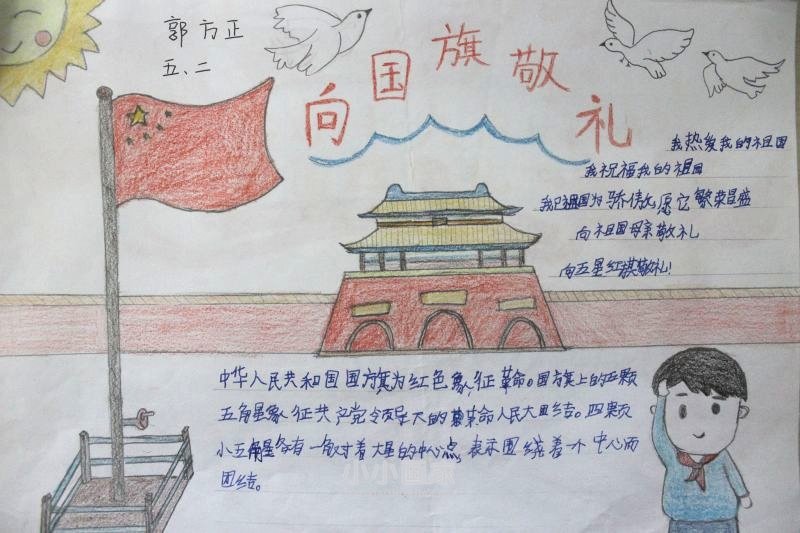 郭方正
五、二
向国旗敬礼
我热爱我的祖国
我祝福我的祖国
我以祖国为骄傲,愿它繁荣昌盛
向祖国母亲敬礼
向五星红旗敬礼!
中华人民共和国国旗为红色象征革命。国旗上的五颗
五角星象征共产党领导下的革命人民大团结。四颗
小五角星各有一角对着大星的中心点,表示围绕着一个中心而
团结。
小小画家